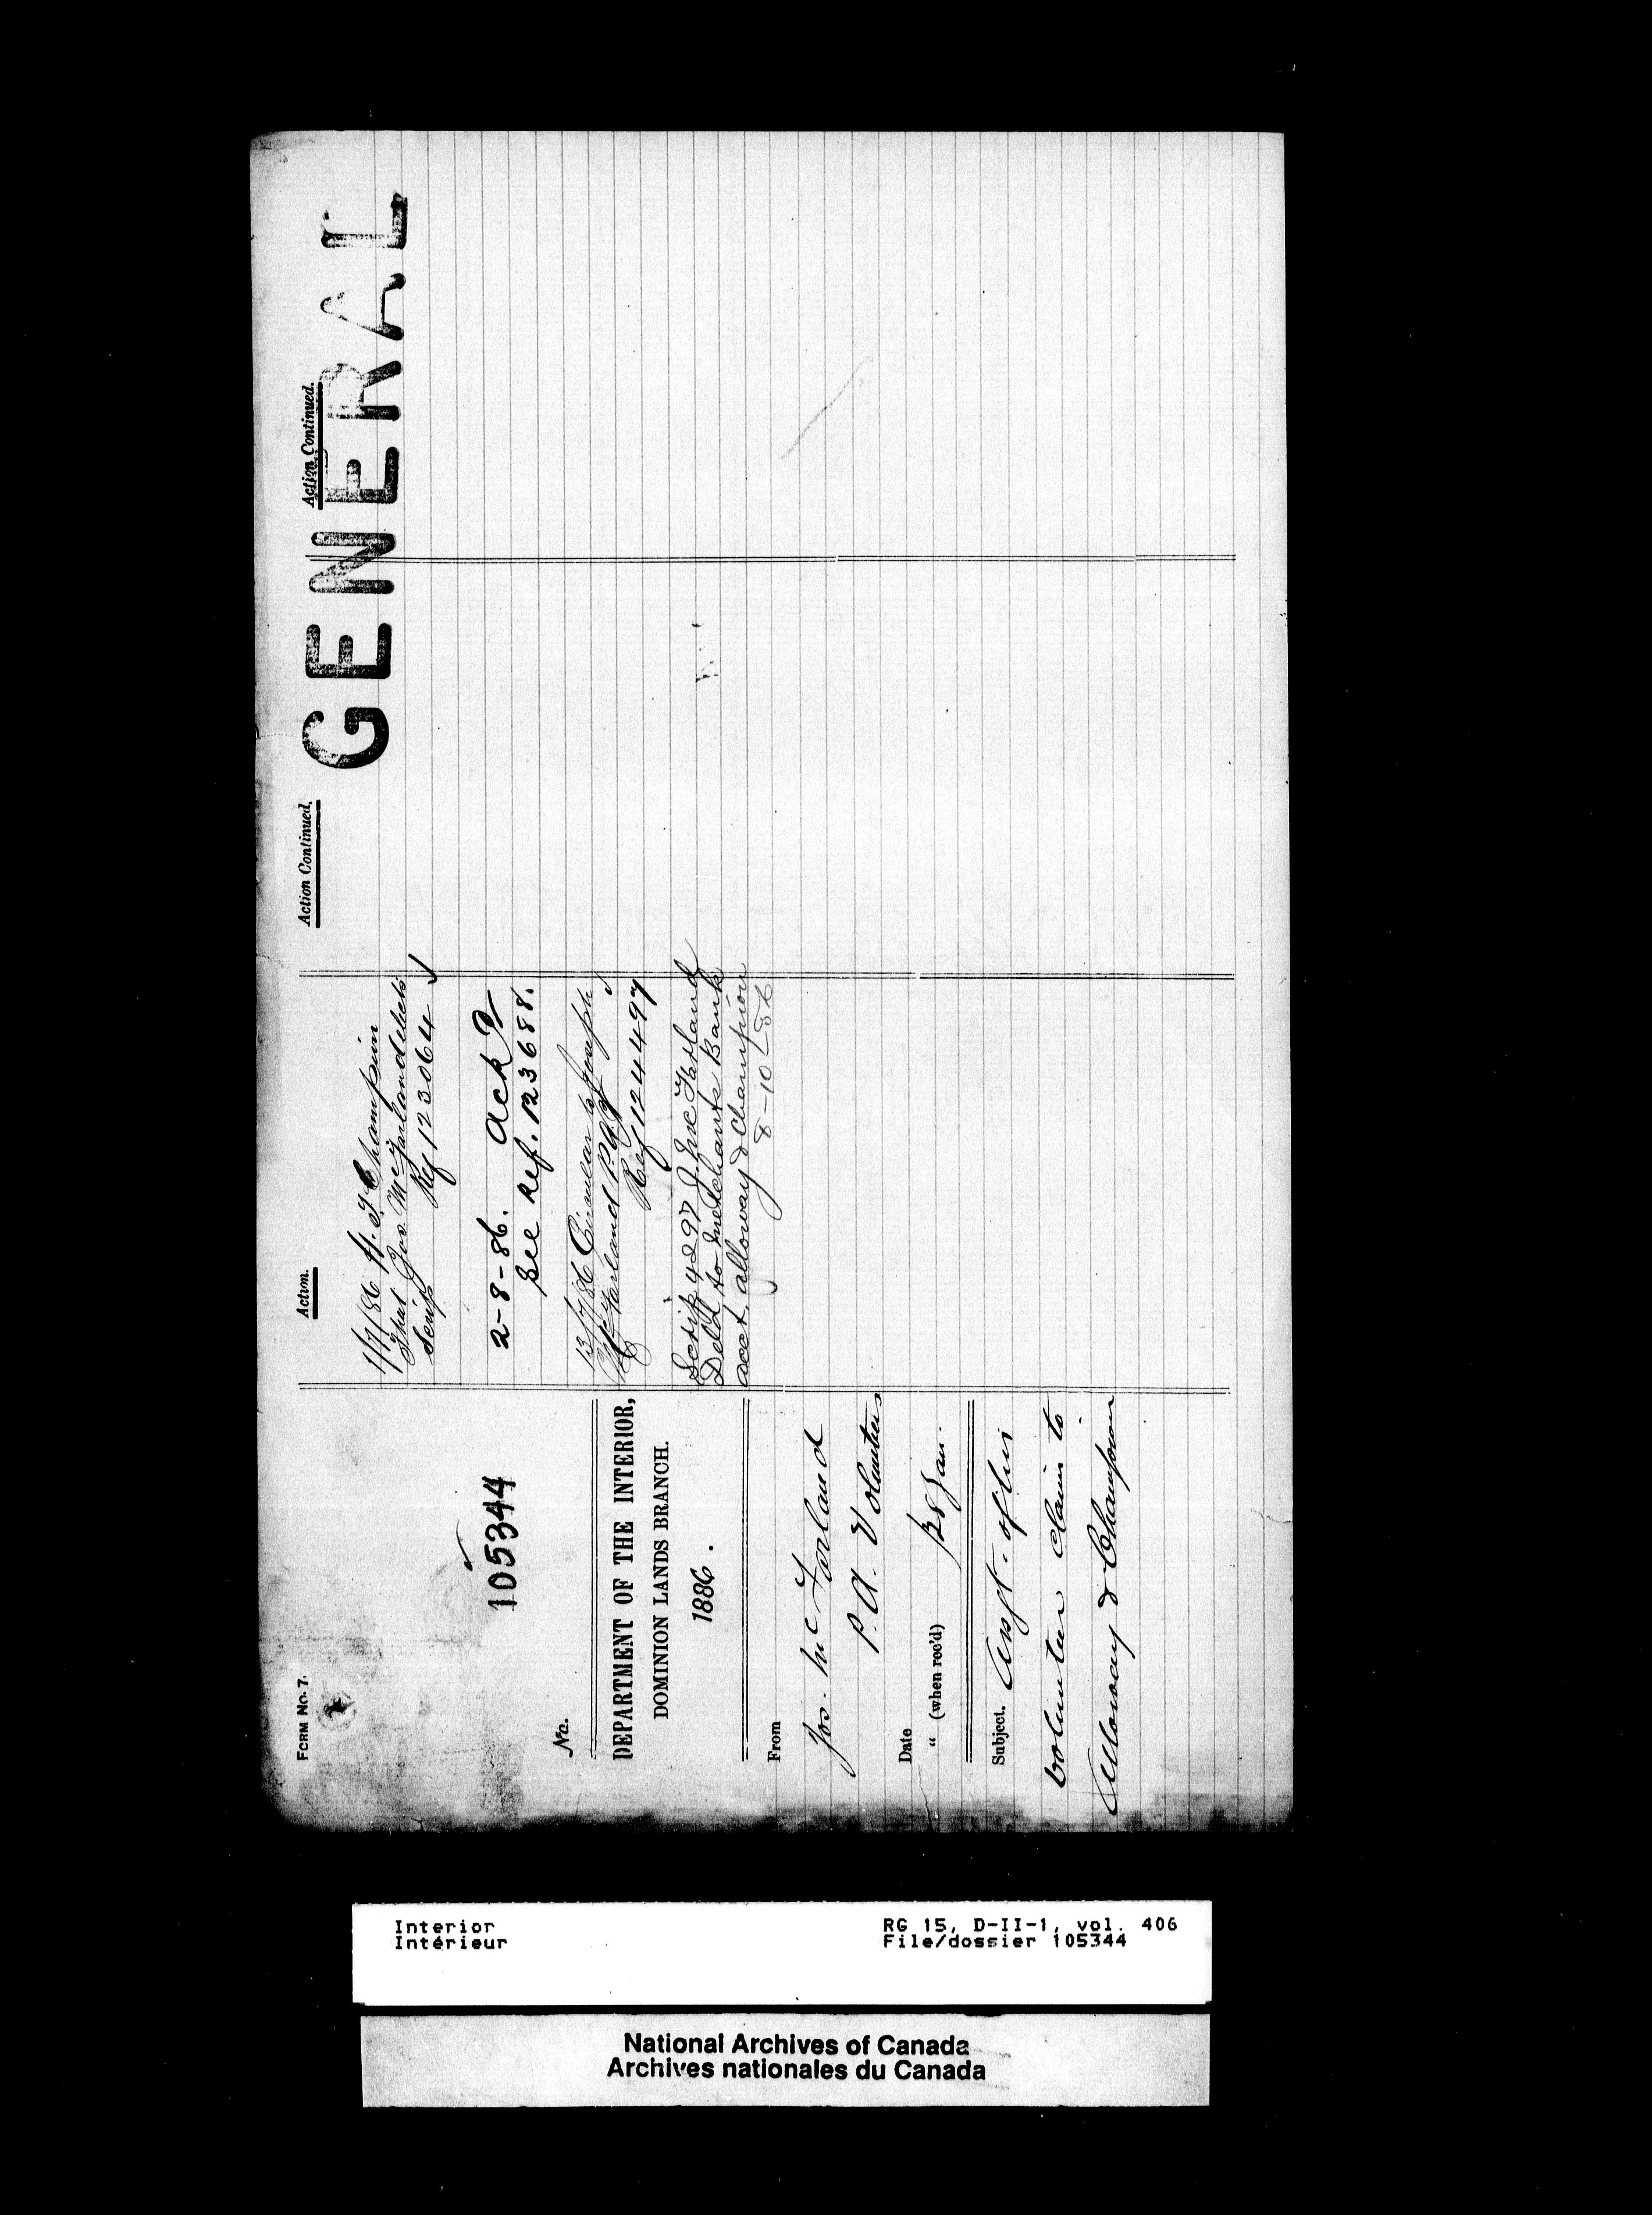 FORM No. 7.
105344
No.
DEPARTMENT OF THE INTERIOR,
DOMINION LANDS BRANCH.
1886.
From
Jos. McFarland
P. A. Volunteers
Date
" (when rec'd) 28 Jan.
Subject. Assgt. of his
volunteer claim to
Alloway & Champion
Action.
1/7/86 H. T. Champion
that Jos. McFarland elects
Scrip Ref 123064 ✓
2-8-86. Ack
See Ref. 123688.
13/7/86 Circular to Joseph
McFarland P.A. ✓
Ref 124497
Scrip 4297 J. McFarland
Deld to Merchants Bank
acct. Alloway & Champion
8-10-86
Action Continued.
Action Continued.
GENERAL
Interior
Intérieur
RG 15, D-II-1, vol. 406
File/dossier 105344
National Archives of Canada
Archives nationales du Canada